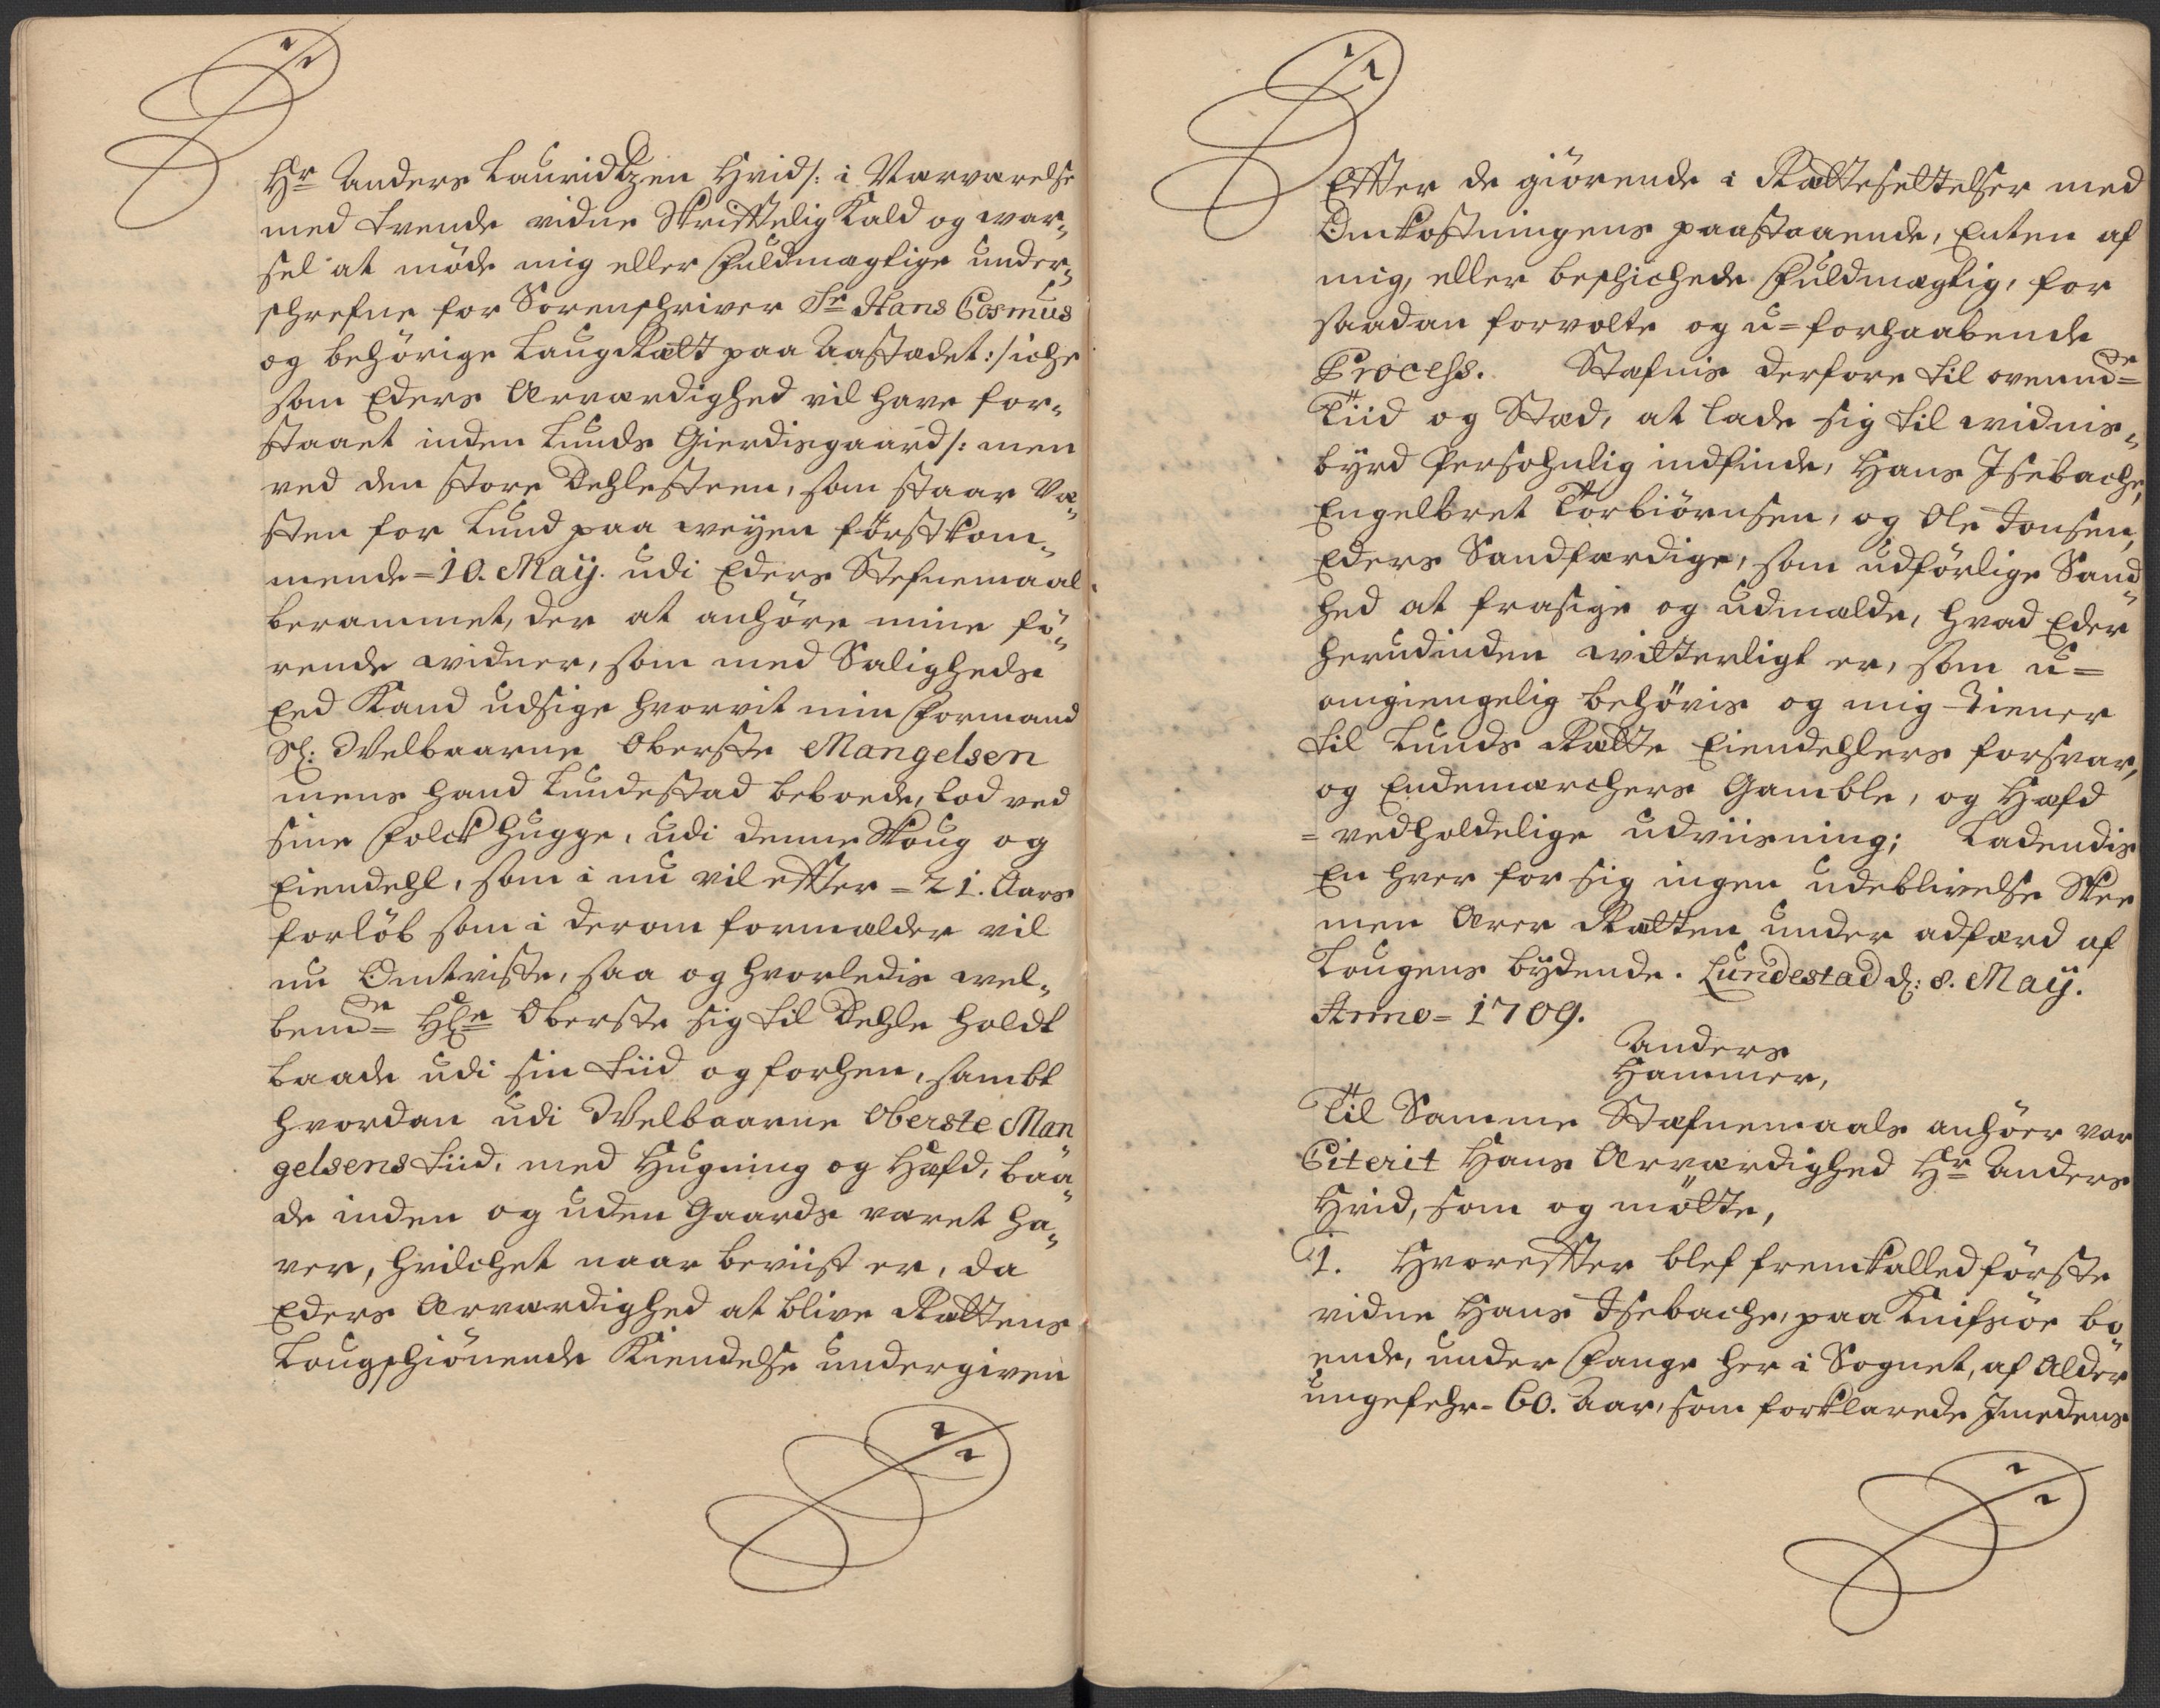 Hr Anders Lauridtzen Hvid /: i Værværelse
med tvende vidne Skrifftelig Kald og war-
sel at møde mig eller Fuldmægtige under-
schrefne for Sorenschriver Sr Hans Cosmus
og behörige Laug Rætt paa Aastædet :/ iche
som Eders Ærværdighed vil have for-
staaet inden Lunds Gierdisgaard /: men
ved den store Dehlesteen, som staar Væ-
sten for Lund paa weyen förstkom-
mende = 10. Maij. udi Eders Stefnemaal
berammet, der at anhöre mine fö-
rende widner, som med Saligheds
Eed Kand udsige hvorvit min Formand
Sl: Welbaarne Oberste Mangelsen
mens hand Lundestad beboede, lod ved
sine Folck hugge, udi denne Skoug og
Eiendehl, som i nu vil effter = 21. Aars
forlöb som i derom formelder vil
nu Omtviste, saa og hvorledis wel-
bemde Hle Oberste sig til Dehle holdt
baade udi sin tiid og forhen, sambt
hvordan udi Welbaarne Oberste Man
gelsens tiid, med Hugning og Hæfd, baa-
de inden og uden Gaards været ha-
ver, hvilchet naar beviist er, da
Eders Ærværdighed at blive Rættens
Lougschiönende Kiendelse undergiven
Effter de giörende i Rættesættelser med
Omkostningens paastaaende, Enten af
mig, eller beschichede Fuldmægtig, for
saadan forvolte og u=forhaabende
Process. Stæfnis derfore til ovennde=
Tiid og Stæd, at lade sig til widnis-
byrd Persohnlig indfinde, Hans Isebache,
Engelbret Torbiörnsen, og Ole Jonsen,
Eders Sandfærdige, som udförlige Sand-
hed at frasige og udmælde, hvad Eder
herudinden witterligt er, som u=
omgiengelig behövis og mig tiener
til Lunds Rætte Eiendehlers forsvar,
og Endemærchers Gamble, og Hæfd
= vedholdelige udviisning; Ladendis
En hver for sig ingen udeblivelse Skee
men Ærer Rætten under adfærd af
Lougens bydende. Lundestad d: 8. Maij.
Anno = 1709.
Anders
Hammer,
Til Samme Stæfnemaals anhöer var
Citerit Hans Ærværdighed Hr Anders
Hvid, som og mötte,
1. Hvoreffter blef fremkalled förste
vidne Hans Isebache, paa Knifsiöe bo-
ende, under Fange her i Sognet, af Alder
ungefehr = 60. Aar, som forklarede Imedens